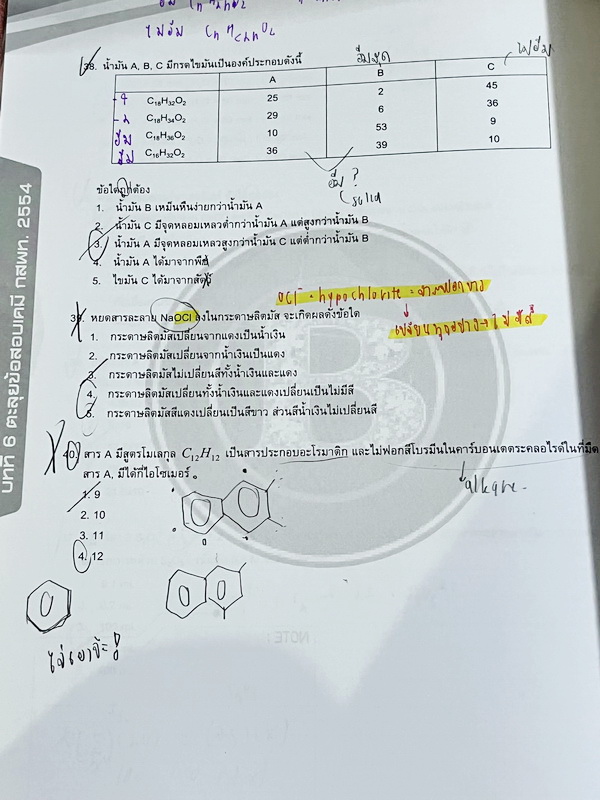 ไม่อิ่ม CnH<2nO2
38. น้ำมัน A, B, C มีกรดไขมันเป็นองค์ประกอบดังนี้
อิ่มสุด
ไม่อิ่ม
A B C
C18H32O2 25 2 45
C18H34O2 29 6 36
อิ่ม C18H36O2 10 53 9
อิ่ม C16H32O2 36 39 10
อิ่ม ?
solid
ข้อใดถูกต้อง
1. น้ำมัน B เหม็นหืนง่ายกว่าน้ำมัน A
2. น้ำมัน C มีจุดหลอมเหลวต่ำกว่าน้ำมัน A แต่สูงกว่าน้ำมัน B
3. น้ำมัน A มีจุดหลอมเหลวสูงกว่าน้ำมัน C แต่ต่ำกว่าน้ำมัน B
4. น้ำมัน A ได้มาจากพืช
5. ไขมัน C ได้มาจากสัตว์
OCl⁻ = hypochlorite = สารฟอกขาว
39. หยดสารละลาย NaOCl ลงในกระดาษลิตมัส จะเกิดผลดังข้อใด
เปลี่ยนทุกอย่าง → ไม่มีสี
1. กระดาษลิตมัสเปลี่ยนจากแดงเป็นน้ำเงิน
2. กระดาษลิตมัสเปลี่ยนจากน้ำเงินเป็นแดง
3. กระดาษลิตมัสไม่เปลี่ยนสีทั้งน้ำเงินและแดง
4. กระดาษลิตมัสเปลี่ยนทั้งน้ำเงินและแดงเปลี่ยนเป็นไม่มีสี
5. กระดาษลิตมัสสีแดงเปลี่ยนเป็นสีขาว ส่วนสีน้ำเงินไม่เปลี่ยนสี
40. สาร A มีสูตรโมเลกุล C12H12 เป็นสารประกอบอะโรมาติก และไม่ฟอกสีโบรมีนในคาร์บอนเตตระคลอไรด์ในที่มืด
สาร A, มีได้กี่ไอโซเมอร์
alkane
1. 9
2. 10
3. 11
4. 12
NOTE :
บทที่ 6 ตะลุยข้อสอบเคมี กสพท. 2554